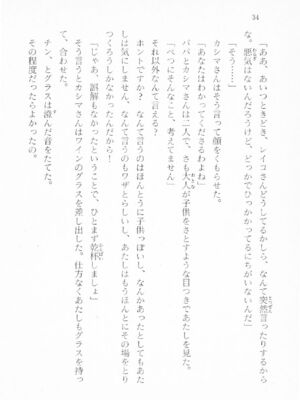 34
「ああ、あいつときどき、レイコさんどうしてるかしら、なんて突然言ったりするから
な。悪気はないんだろうけど、どっかでひっかかってるにちがいないんだ」
「そう……」
カシマさんはそう言って顔をくもらせた。
「あなたはわかってくださるわよね」
パパとカシマさんは二人で、さも大人が子供をさとすような目つきであたしを見た。
「べつにそんなこと、考えてません」
それ以外なんて言える？
ホントですか？なんて言うのはほんとうに子供っぽいし、なんかあったとしても
しは気にしません、なんて言うのもワザとらしいし、あたしはもうほんとにその場をとり
つくろうしかなかったんだから！
「じゃあ、誤解もなかったということで、ひとまず乾杯しましょ」
そう言うとカシマさんはワインのグラスを差し出した。仕方なくあたしもグラスを持っ
て、合わせた。
チン、とグラスは澄んだ音をたてた。
その程度だったらよかったの。